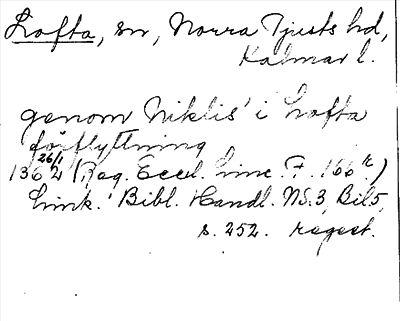 Lofta, sn, Norra Tjusts hd,
Kalmar l.
genom Niklis' i Lofta
förflyttning
26/1
1362 (Reg. Eccl. Linc. F. 166 r.)
Link. Bibl. Handl. NS. 3, Bil 5,
s. 252. regest.